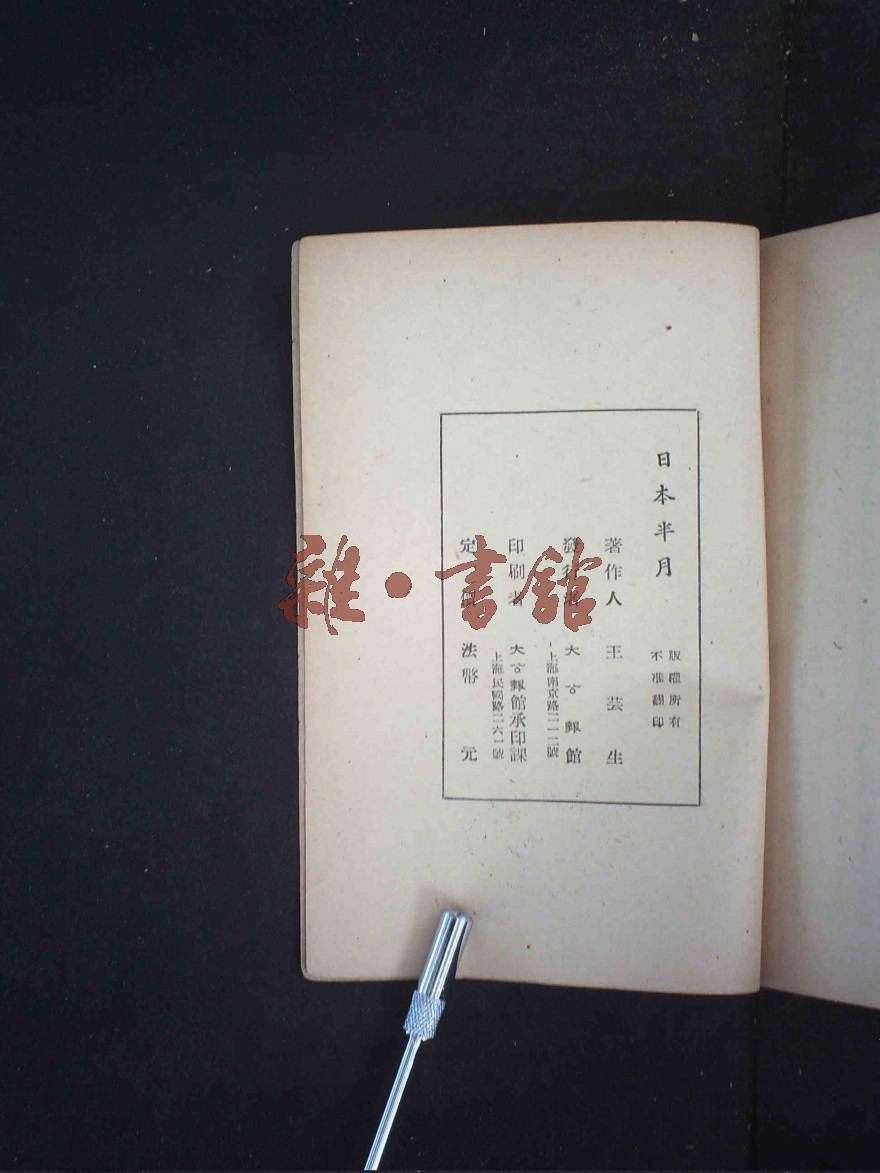 日本半月
版權所有
不准翻印
著作人 王芸生
發行者 大公報館
上海南京路二一二號
印刷者 大公報館承印課
上海民國路二六一號
定價 法幣 元
雜·書館